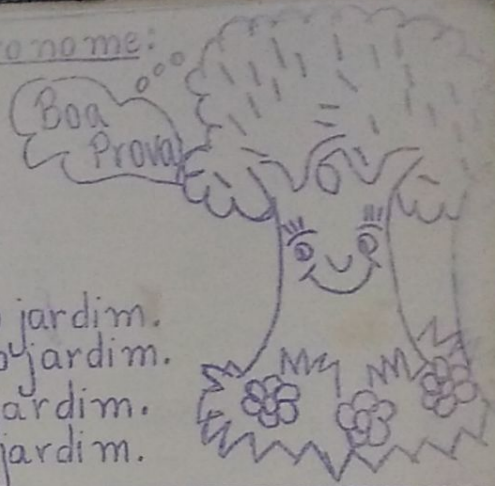 onome:
Boa
Prova
jardim.
o jardim.
ardim.
jardim.